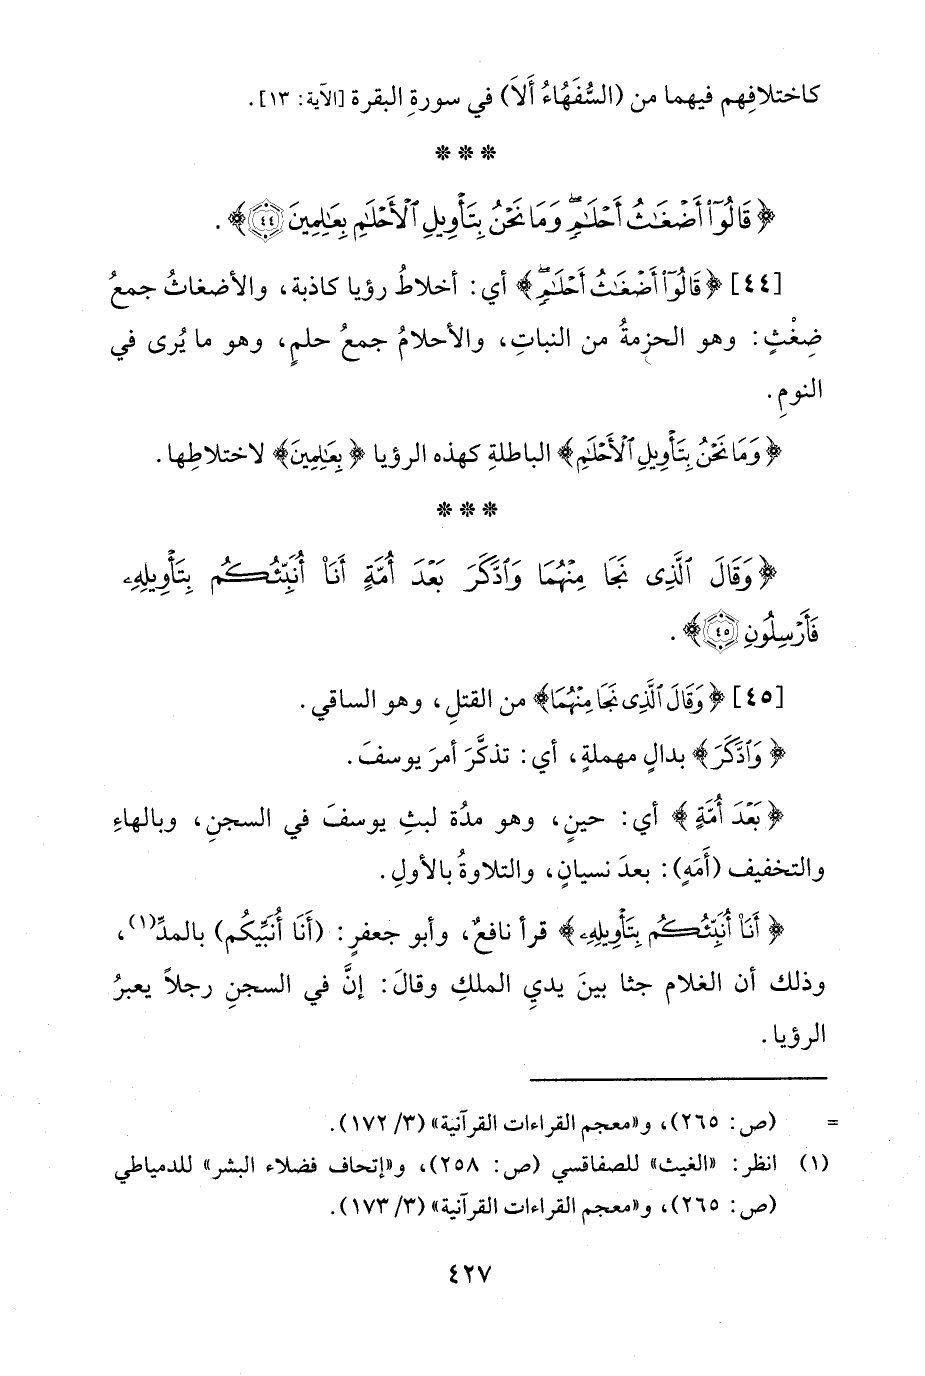 كاختلافِهم فيهما من (السُّفَهَاءُ أَلاَ) في سورةِ البقرة [الآية: ١٣].
* * *
﴿قَالُوٓاْ أَضْغَٰثُ أَحْلَٰمٍۖ وَمَا نَحْنُ بِتَأْوِيلِ ٱلْأَحْلَٰمِ بِعَٰلِمِينَ ٤٤﴾.
[٤٤] ﴿قَالُوٓاْ أَضْغَٰثُ أَحْلَٰمٍۖ﴾ أي: أخلاطُ رؤيا كاذبة، والأضغاثُ جمعُ
ضِغْثٍ: وهو الحزمةُ من النباتِ، والأحلامُ جمعُ حلمٍ، وهو ما يُرى في
النومِ.
﴿وَمَا نَحْنُ بِتَأْوِيلِ ٱلْأَحْلَٰمِ﴾ الباطلةِ كهذه الرؤيا ﴿بِعَٰلِمِينَ﴾ لاختلاطِها.
* * *
﴿وَقَالَ ٱلَّذِى نَجَا مِنْهُمَا وَٱدَّكَرَ بَعْدَ أُمَّةٍ أَنَا۠ أُنَبِّئُكُم بِتَأْوِيلِهِۦ
فَأَرْسِلُونِ ٤٥﴾.
[٤٥] ﴿وَقَالَ ٱلَّذِى نَجَا مِنْهُمَا﴾ من القتلِ، وهو الساقي.
﴿وَٱدَّكَرَ﴾ بدالٍ مهملةٍ، أي: تذكَّرَ أمرَ يوسفَ.
﴿بَعْدَ أُمَّةٍ﴾ أي: حينٍ، وهو مدُة لبثِ يوسفَ في السجنِ، وبالهاءِ
والتخفيف (أَمَهٍ): بعدَ نسيانٍ، والتلاوةُ بالأولِ.
﴿أَنَا۠ أُنَبِّئُكُم بِتَأْوِيلِهِۦ﴾ قرأ نافعٌ، وأبو جعفرٍ: (أَنَا أُنَبِّيكُم) بالمدِّ(١)،
وذلك أن الغلام جثا بينَ يديِ الملكِ وقالَ: إنَّ في السجنِ رجلاً يعبرُ
الرؤيا.
= (ص: ٢٦٥)، و«معجم القراءات القرآنية» (٣/ ١٧٢).
(١) انظر: «الغيث» للصفاقسي (ص: ٢٥٨)، و«إتحاف فضلاء البشر» للدمياطي
(ص: ٢٦٥)، و«معجم القراءات القرآنية» (٣/ ١٧٣).
٤٢٧